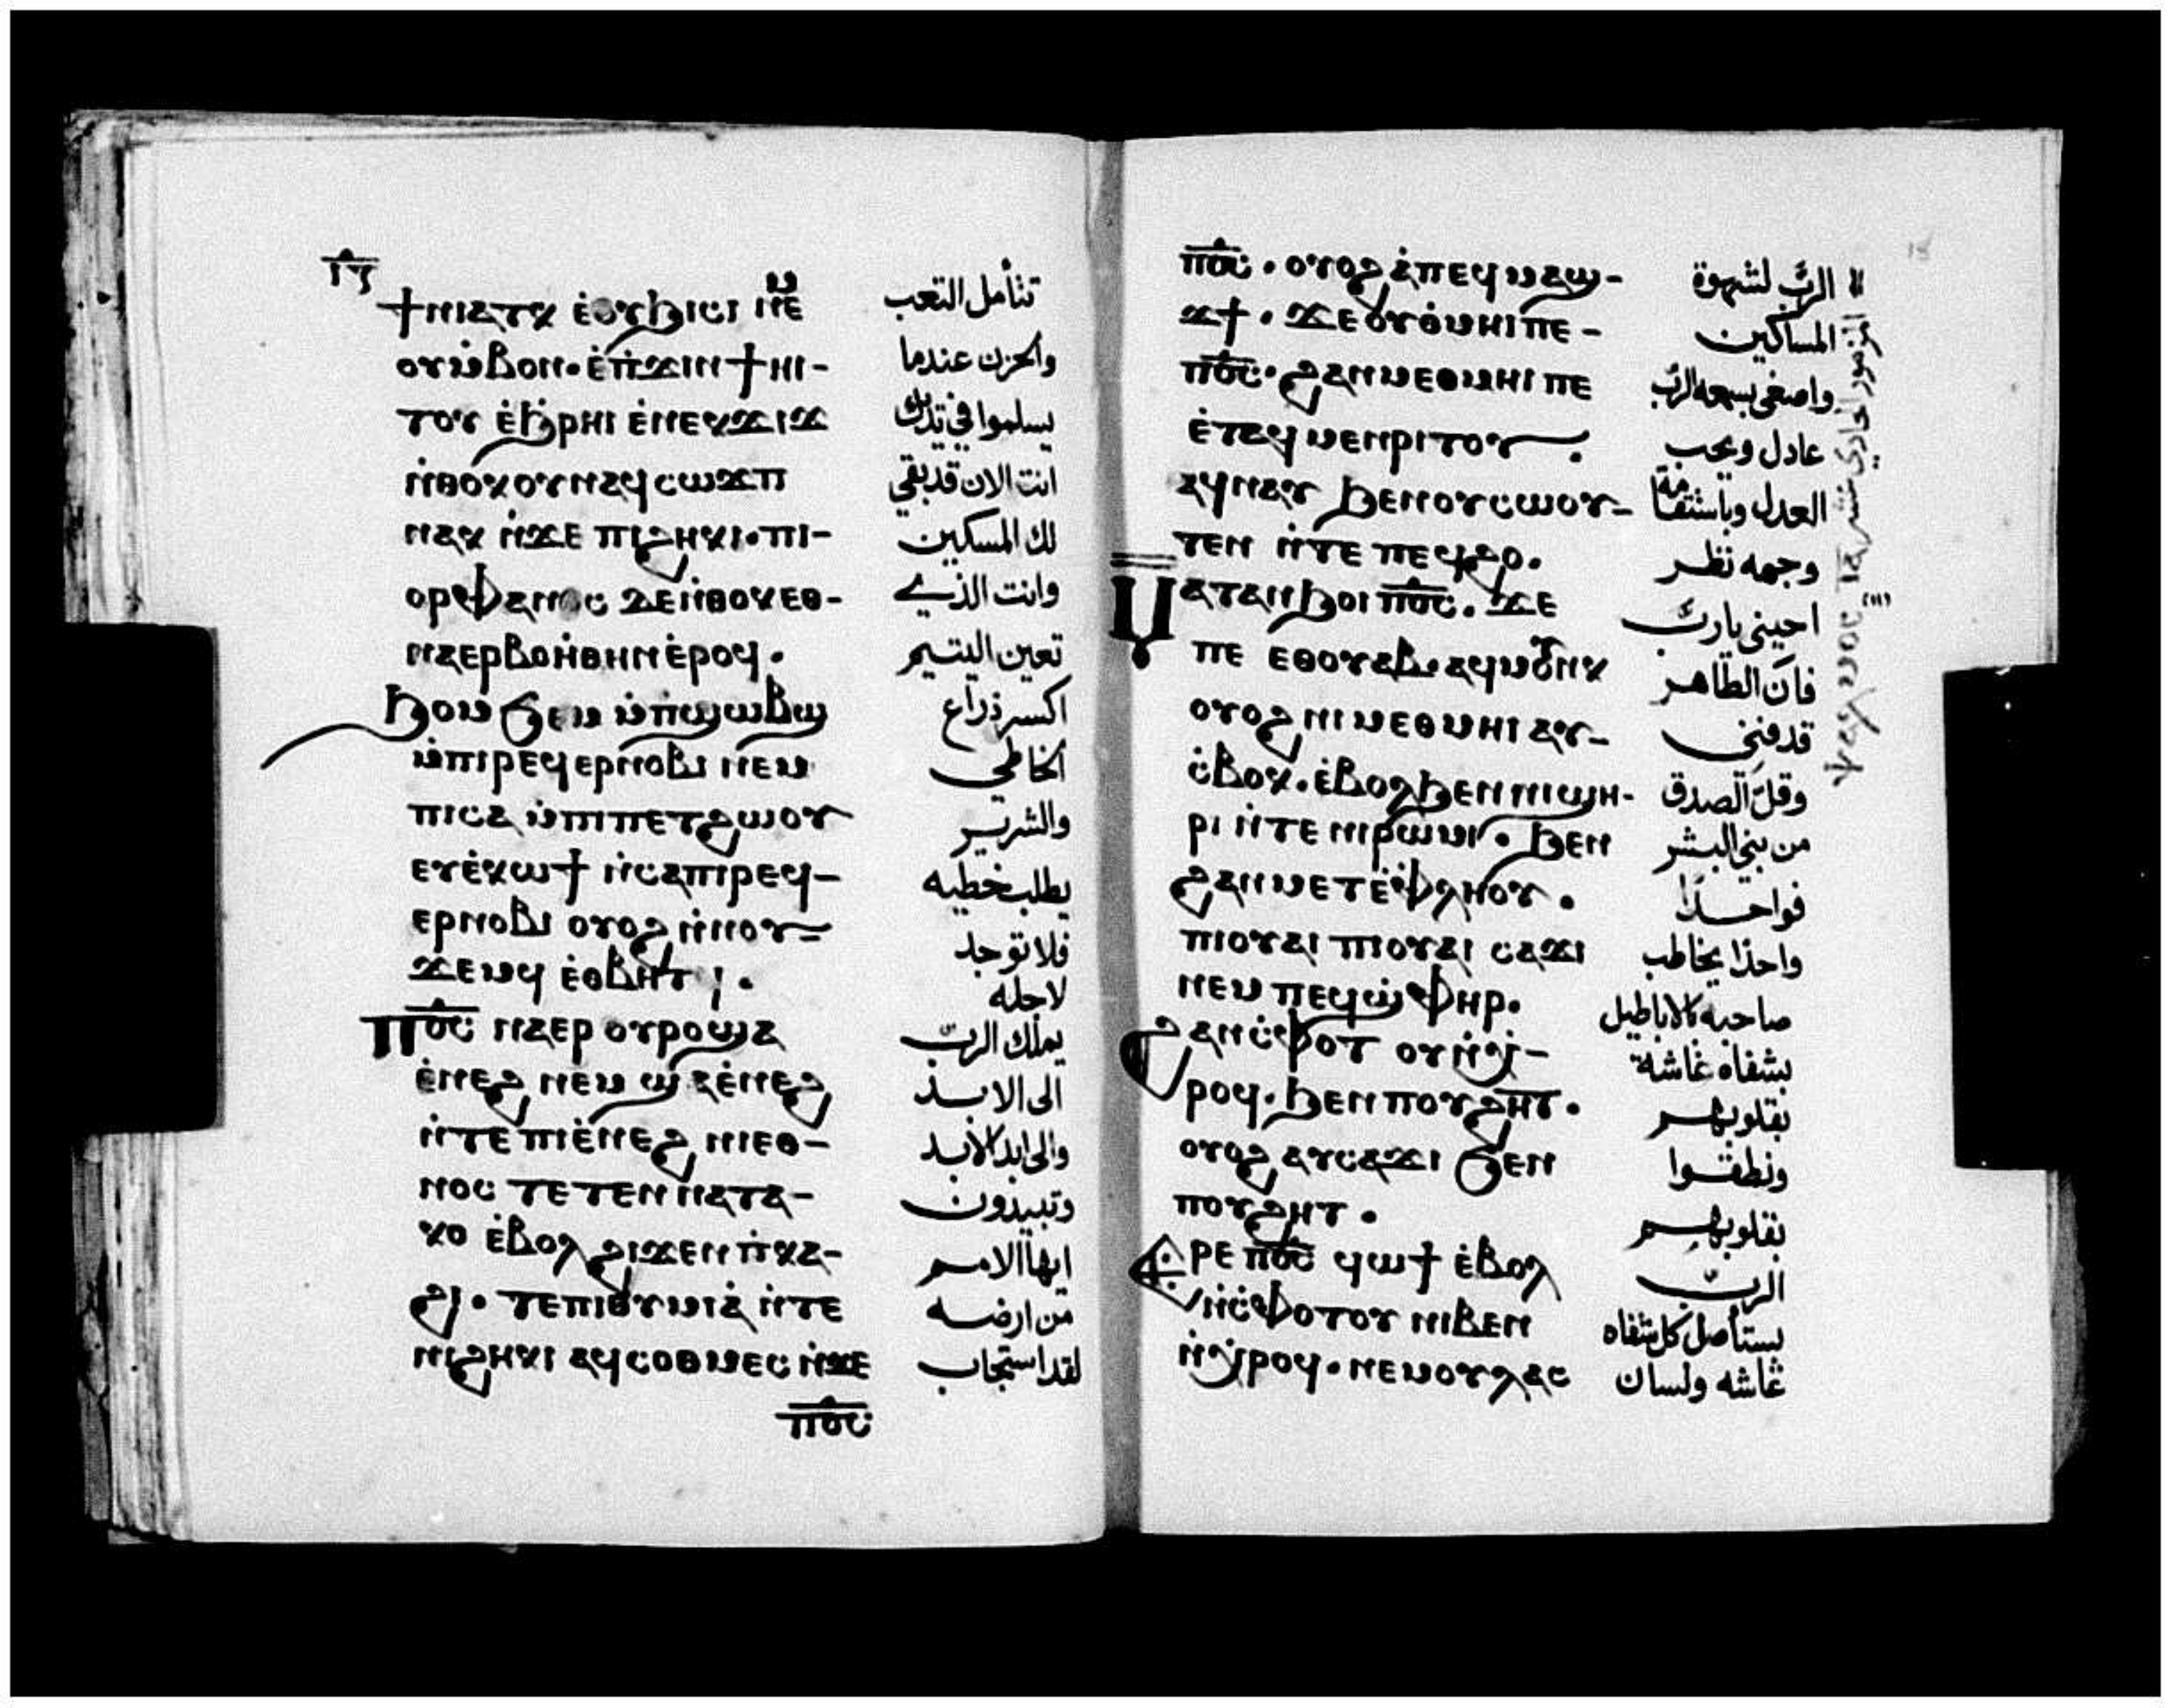 ⲓ̅ⲋ̅
ϯⲛⲓⲁⲧⲕ ⲉ̇ⲟⲩϧⲓⲥⲓ ⲛⲉⲙ
ⲟⲩⲙ̇ⲃⲟⲛ· ⲉ̇ⲡ̇ϫⲓⲛϯⲏⲓ-
ⲧⲟⲩ ⲉ̇ϧⲣⲏⲓ ⲉ̇ⲛⲉⲕϫⲓϫ
ⲛ̇ⲑⲟⲕ ⲟⲩⲛ ⲁϥⲥⲱϫⲡ
ⲛⲁⲕ ⲛ̇ϫⲉ ⲡⲓϩⲏⲕⲓ· ⲡⲓ-
ⲟⲣⲫⲁⲛⲟⲥ ⲇⲉ ⲛ̇ⲑⲟⲕ ⲉⲑ-
ⲛⲁⲉⲣⲃⲟⲏ̇ⲑⲏⲛ ⲉ̇ⲣⲟϥ·
ϧⲟⲙϧⲉⲙ ⲙ̇ⲡ̇ϣⲱⲃϣ
ⲙ̇ⲡⲓⲣⲉϥⲉⲣⲛⲟⲃⲓ ⲛⲉⲙ
ⲡⲓⲥⲁ ⲙ̇ⲡⲓⲡⲉⲧϩⲱⲟⲩ
ⲉⲩⲉ̇ⲕⲱϯ ⲛ̇ⲥⲁ ⲡⲓⲣⲉϥ-
ⲉⲣⲛⲟⲃⲓ ⲟⲩⲟϩ ⲛ̇ⲛⲟⲩ-
ϫⲉⲙϥ ⲉ̇ⲑⲃⲏⲧ
ⲡ̅ⲟ̅ⲥ̅ ⲛⲁⲉⲣ ⲟⲩⲣⲟ ϣⲁ
ⲉ̇ⲛⲉϩ ⲛⲉⲙ ϣⲁ ⲉ̇ⲛⲉϩ
ⲛ̇ⲧⲉ ⲡⲓⲉ̇ⲛⲉϩ ⲛⲓⲉⲑ-
ⲛⲟⲥ ⲧⲉⲧⲉⲛⲛⲁⲧⲁ-
ⲕⲟ ⲉ̇ⲃⲟⲗ ϩⲓϫⲉⲛ ⲡ̇ⲕⲁ-
ϩⲓ· ⲧⲉⲡⲓⲑⲩⲙⲓⲁ̇ ⲛ̇ⲧⲉ
ⲛⲓϩⲏⲕⲓ ⲁϥⲥⲟⲑⲙⲉⲥ ⲛ̇ϫⲉ
ⲡ̅ⲟ̅ⲥ̅
تتأمل التعب
والحزن عندما
يسلموا في يديك
انت الان قد بقي
لك المسكين
وانت الذي
تعين اليتيم
اكسر ذراع
الخاطي
والشرير
يطلب خطيه
فلا توجد
لاجله
يملك الرب
الى الابد
والى ابد الابد
وتبيدون
ايها الامم
من ارضه
لقد استجاب
ⲡ̅ⲟ̅ⲥ̅· ⲟⲩⲟϩ ⲁ̇ ⲡⲉϥⲙⲁϣ-
ϫ ϯ· ϫⲉ ⲟⲩⲑ̇ⲙⲏⲓ ⲡⲉ-
ⲡ̅ⲟ̅ⲥ̅· ϩⲁⲛⲙⲉⲑⲙⲏⲓ ⲡⲉ
ⲉ̇ⲧⲁϥⲙⲉⲛⲣⲓⲧⲟⲩ
ⲁϥⲛⲁⲩ ϧⲉⲛ ⲟⲩⲥⲱⲟⲩ-
ⲧⲉⲛ ⲛ̇ⲧⲉ ⲡⲉϥϩⲟ·
ⲙⲁⲧⲁⲛϧⲟⲓ ⲡ̅ⲟ̅ⲥ̅· ϫⲉ
ⲡⲉ ⲉⲑⲟⲩⲁⲃ· ⲁϥⲙⲟⲩⲛⲕ
ⲟⲩⲟϩ ⲛⲓⲙⲉⲑⲙⲏⲓ ⲁⲩ-
ⲥ̇ⲃⲟⲕ· ⲉ̇ⲃⲟⲗ ϧⲉⲛ ⲛⲓϣⲏ-
ⲣⲓ ⲛ̇ⲧⲉ ⲛⲓⲣⲱⲙⲓ· ϧⲉⲛ
ϩⲁⲛⲙⲉⲧⲉ̇ⲫⲗⲏⲟⲩ·
ⲡⲓⲟⲩⲁⲓ ⲡⲓⲟⲩⲁⲓ ⲥⲁϫⲓ
ⲛⲉⲙ ⲡⲉϥϣ̇ⲫⲏⲣ·
ϩⲁⲛⲥ̇ⲫⲟⲧⲟⲩ ⲛ̇ϭⲓ-
ⲣⲟϥ· ϧⲉⲛ ⲡⲟⲩϩⲏⲧ·
ⲟⲩⲟϩ ⲁⲩⲥⲁϫⲓ ϧⲉⲛ
ⲡⲟⲩϩⲏⲧ·
ⲁⲣⲉ ⲡ̅ⲟ̅ⲥ̅ ϥⲱϯ ⲉ̇ⲃⲟⲗ
ⲛ̇ⲥ̇ⲫⲟⲧⲟⲩ ⲛⲓⲃⲉⲛ
ⲛ̇ϭⲓⲣⲟϥ· ⲛⲉⲙ ⲟⲩⲗⲁⲥ
الرب لشهوة
المساكين
واصغى بسمعه الرب
عادل ويحب
العدل وباستقامة
وجهه نظر
احيني يارب
فان الطاهر
قد فني
وقل الصدق
من بني البشر
فواحدا
واحدا يخاطب
صاحبه كالاباطيل
بشفاه غاشة
بقلوبهم
ونطقوا
بقلوبهم
الرب
يستأصل كل شفاه
غاشه ولسان
المزمور الحادي عشر ⲓ̅ⲁ̅ ⲯⲁⲗⲙⲟⲥ
15